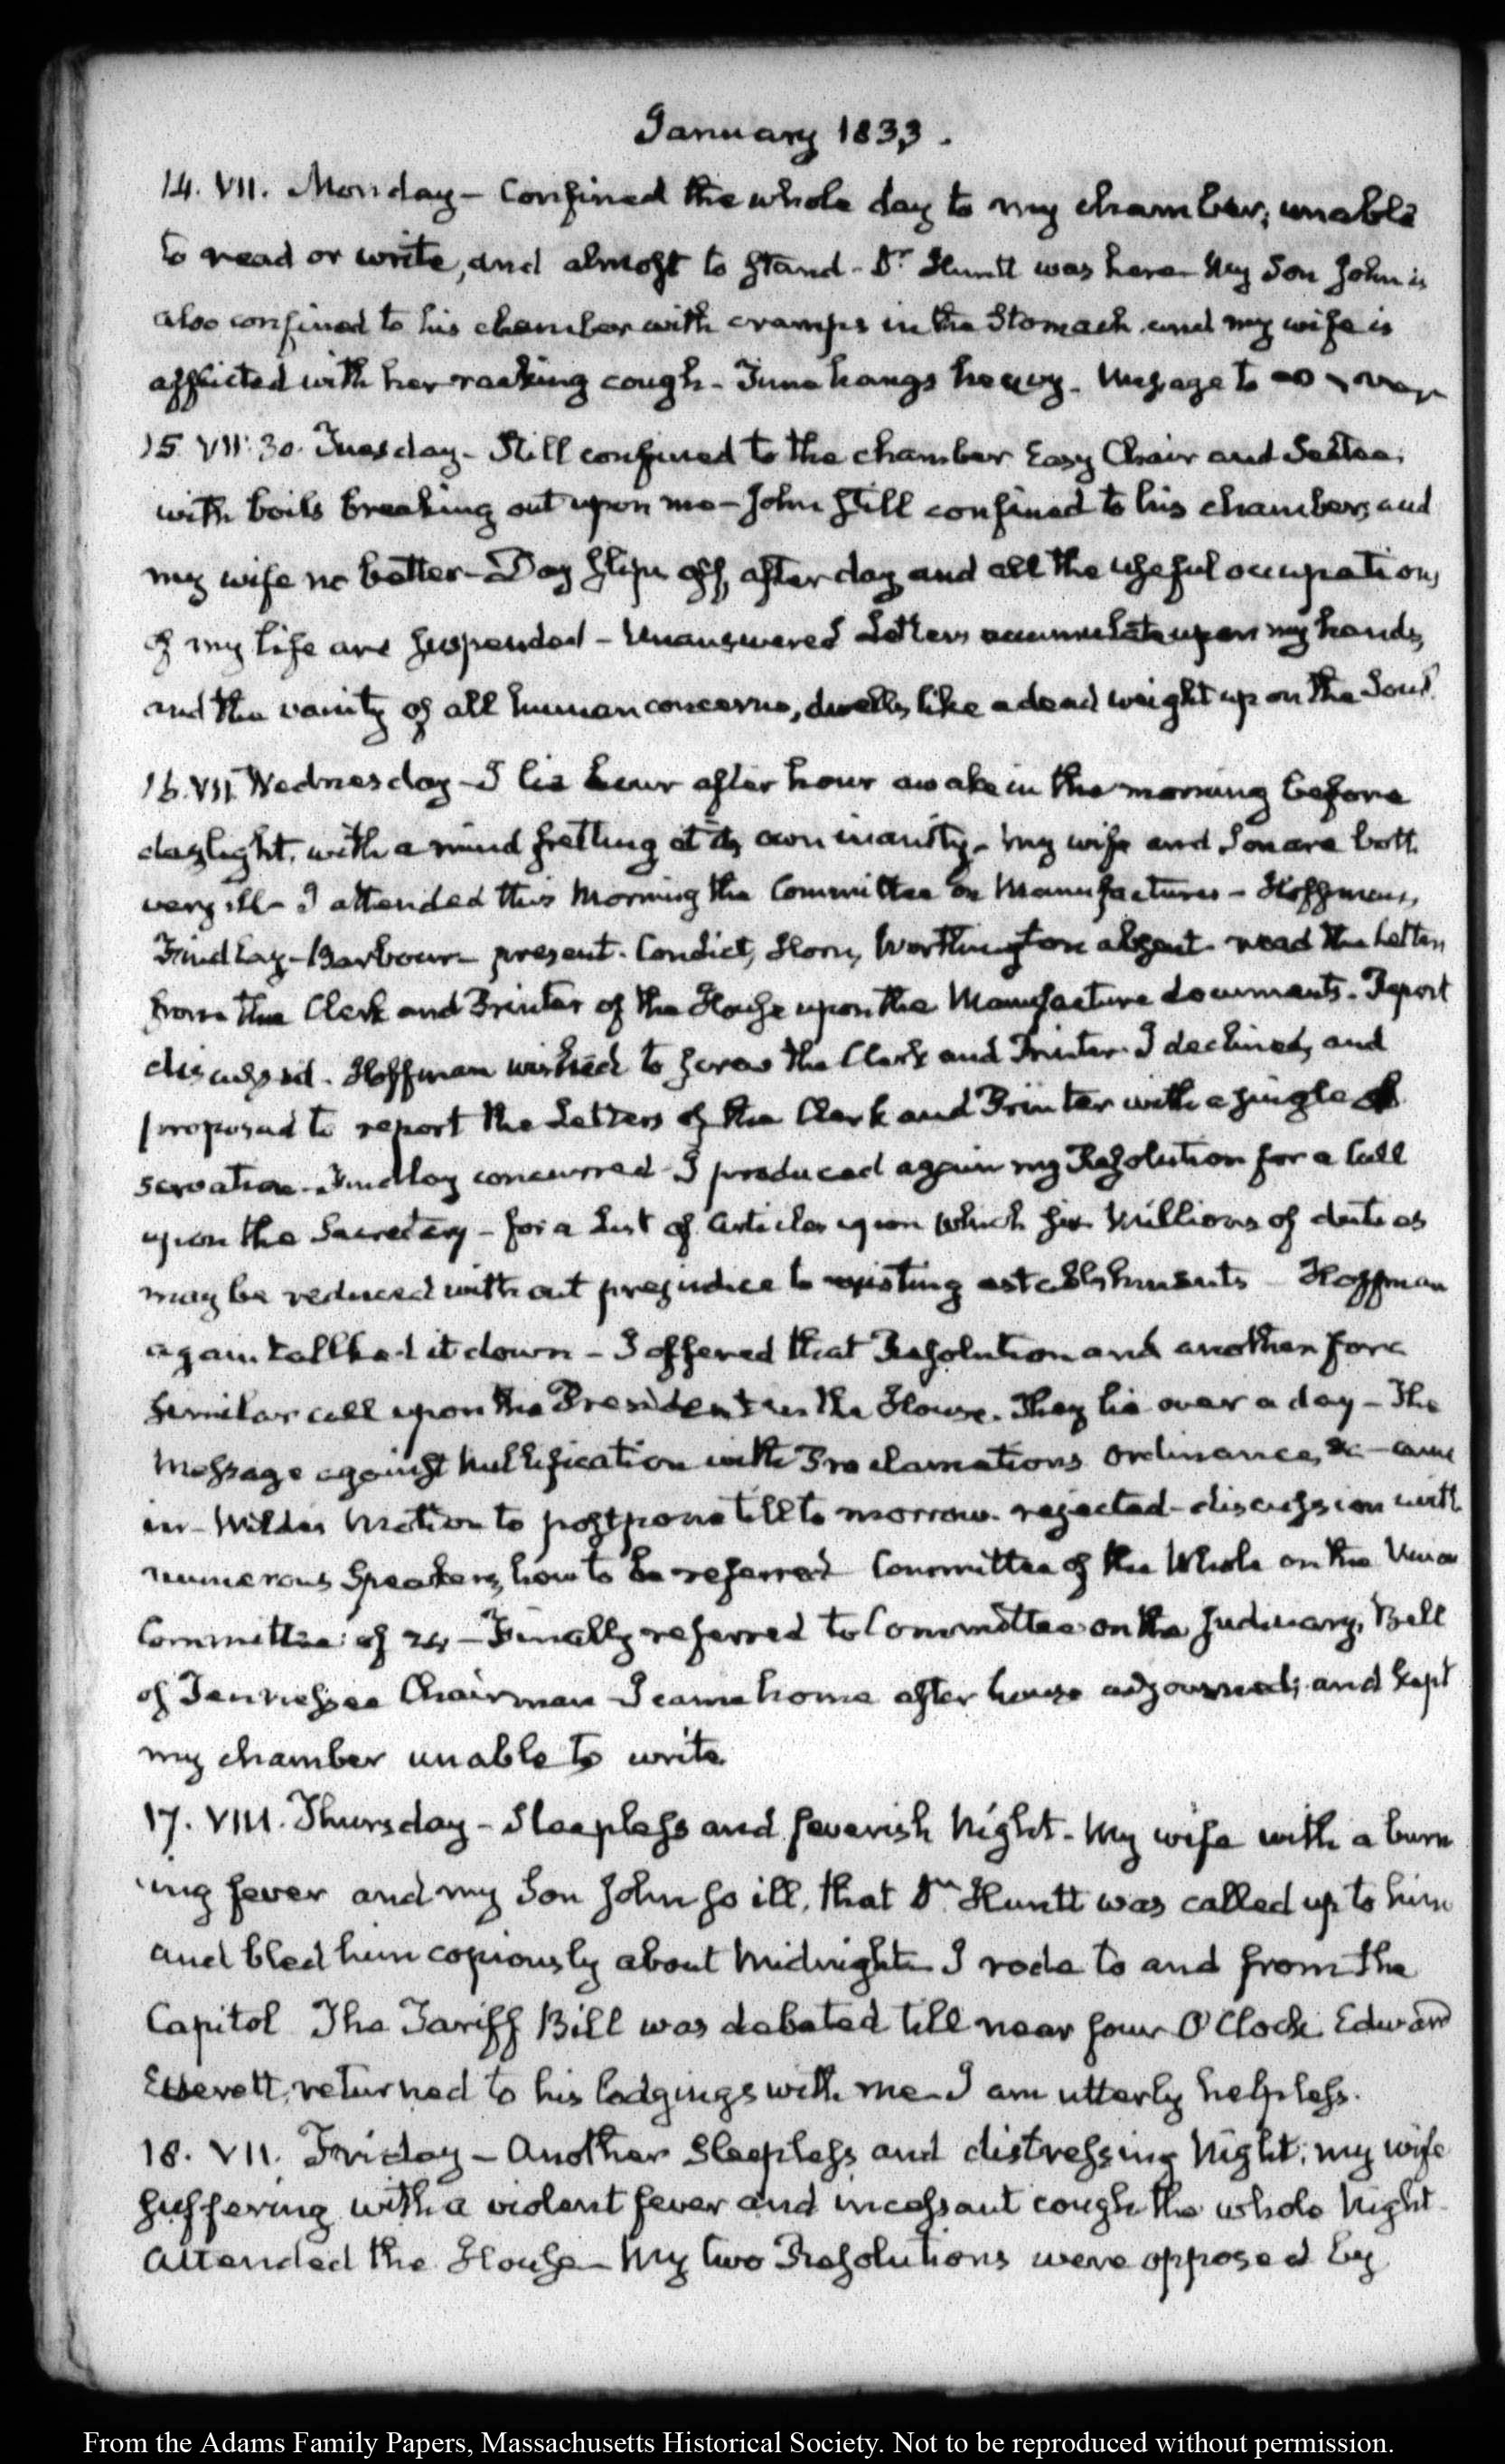 January 1833.
14. VII. Monday – Confined the whole day to my chamber; unable
to read or write, and almost to stand – Dr. Huntt was here – My Son John is
also confined to his chamber with cramps in the Stomach and my wife is
afflicted with her racking cough – Time hangs heavy. Message to
15 VII:30. Tuesday – Still confined to the chamber Easy Chair and Settee,
with boils breaking out upon me – John still confined to his chamber, and
my wife no better – Day slips off, after day and all the useful occupations
of my life are suspended – Unanswered Letters accumulate upon my hands,
and the vanity of all human concerns, dwells like a dead weight upon the Soul.
16. VII. Wednesday – I lie hour after hour awake in the morning before
daylight, with a mind fretting at its own inanity – My wife and Son are both
very ill – I attended this Morning the Committee on Manufactures – Hoffman,
Findlay – Barbour – present. Condict, Horn, Worthington absent – read the Letters
from the Clerk and Printer of the House upon the Manufacture documents. Report
discussed. Hoffman wished to screw the Clerk and Printer. I declined, and
proposed to report the Letters of the Clerk and Printer with a single ob
servation – Findlay concurred – I produced again my Resolution for a Call
upon the Secretary – for a List of Articles upon which six Millions of duties
may be reduced without prejudice to existing establishments – Hoffman
again talked it down – I offered that Resolution and another for a
similar call upon the President in the House. They lie over a day – The
Message against Nullification with Proclamations Ordinance, &c – came
in – Wilde's Motion to postpone till to morrow rejected – discussion with
numerous Speakers, how to be referred Committee of the Whole on the Union
Committee of 24 – Finally referred to Committee on the Judiciary, Bell
of Tennessee Chairman – I came home after house adjourned; and kept
my chamber unable to write.
17. VIII. Thursday – Sleepless and feverish Night – My wife with a burn
ing fever and my Son John so ill, that Dr. Huntt was called up to him
and bled him copiously about Midnight – I rode to and from the
Capitol The Tariff Bill was debated till near four O'Clock. Edward
Everett, returned to his lodgings with me – I am utterly helpless.
18. VII. Friday – Another Sleepless and distressing Night; my wife
suffering with a violent fever and incessant cough the whole Night –
Attended the House – My two Resolutions were opposed by
From the Adams Family Papers, Massachusetts Historical Society. Not to be reproduced without permission.